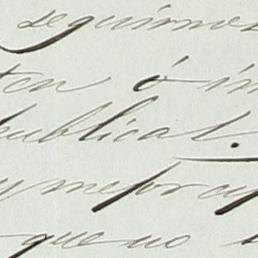 seguimos
ten ó im
publicas.
y mejor
que no